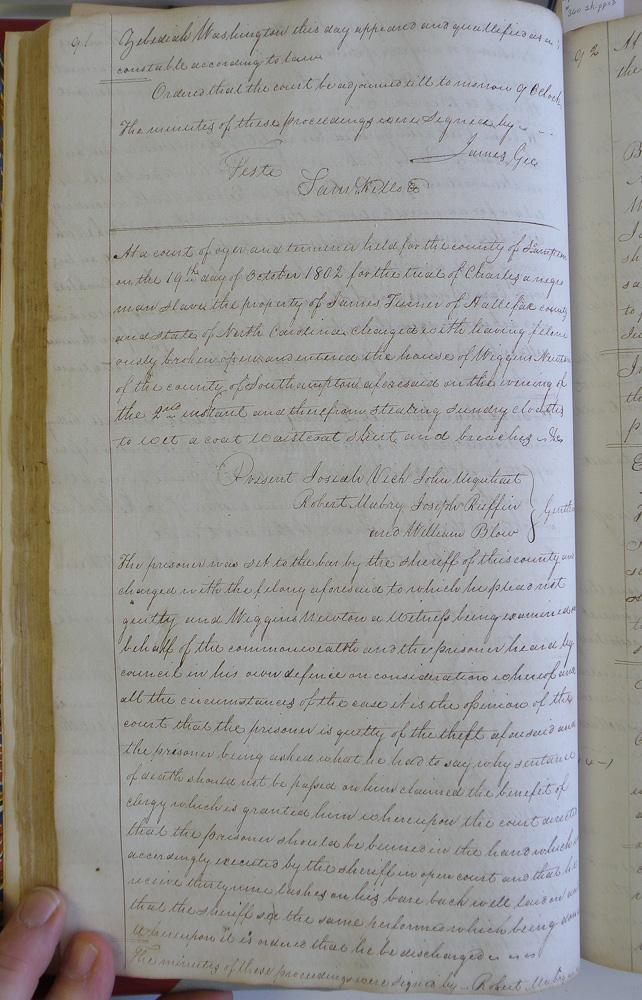 91
Zebediah Washington this day appeared and quallified as a
constable according to law
Ordered that the court be adjourned till to morrow 9 OClock
The minutes of these proceedings were Signed by
James Gee
Teste
Saml Kello
At a court of oyer and terminer held for the county of
on the 19th day of October 1802 for the trial of Charles a negro
man slave the property of James Turner of Hallifax county
and state of North Carolina charged with having felon
ously broken open and entered the house of Wiggins Newton
of the county of Southampton aforesaid on the evening of
the 2nd instant and therefrom stealing Sundry cloathes
to wit a coat waistcoat Shirt and breaches
Present Josiah Vick John Urquhart
Robert Mabry Joseph Ruffin
and William Blow
Gentlm
The prisoner was set to the bar by the sheriff of this county and
charged with the felony aforesaid to which he plead not
guilty and Wiggins Newton a Witness being examined on
behalf of the commonwealth and the prisoner heard by
council in his own defence on consideration whereof and
all the circumstances of the case it is the opinion of the
court that the prisoner is guilty of the theft aforesaid and
the prisoner being asked what he had to say why sentance
of death should not be passed on him claimed the benefit of
clergy which is granted him whereupon the court directed
that the prisoner should be burned in the hand which is
accordingly executed by the sheriff in open court and that he
receive thirty nine lashes on his bare back well laid on and
that the sheriff see the same performed which being done
Whereupon it is ordered that he be discharged
The minutes of these proceedings were signed by Robert Mabry
92